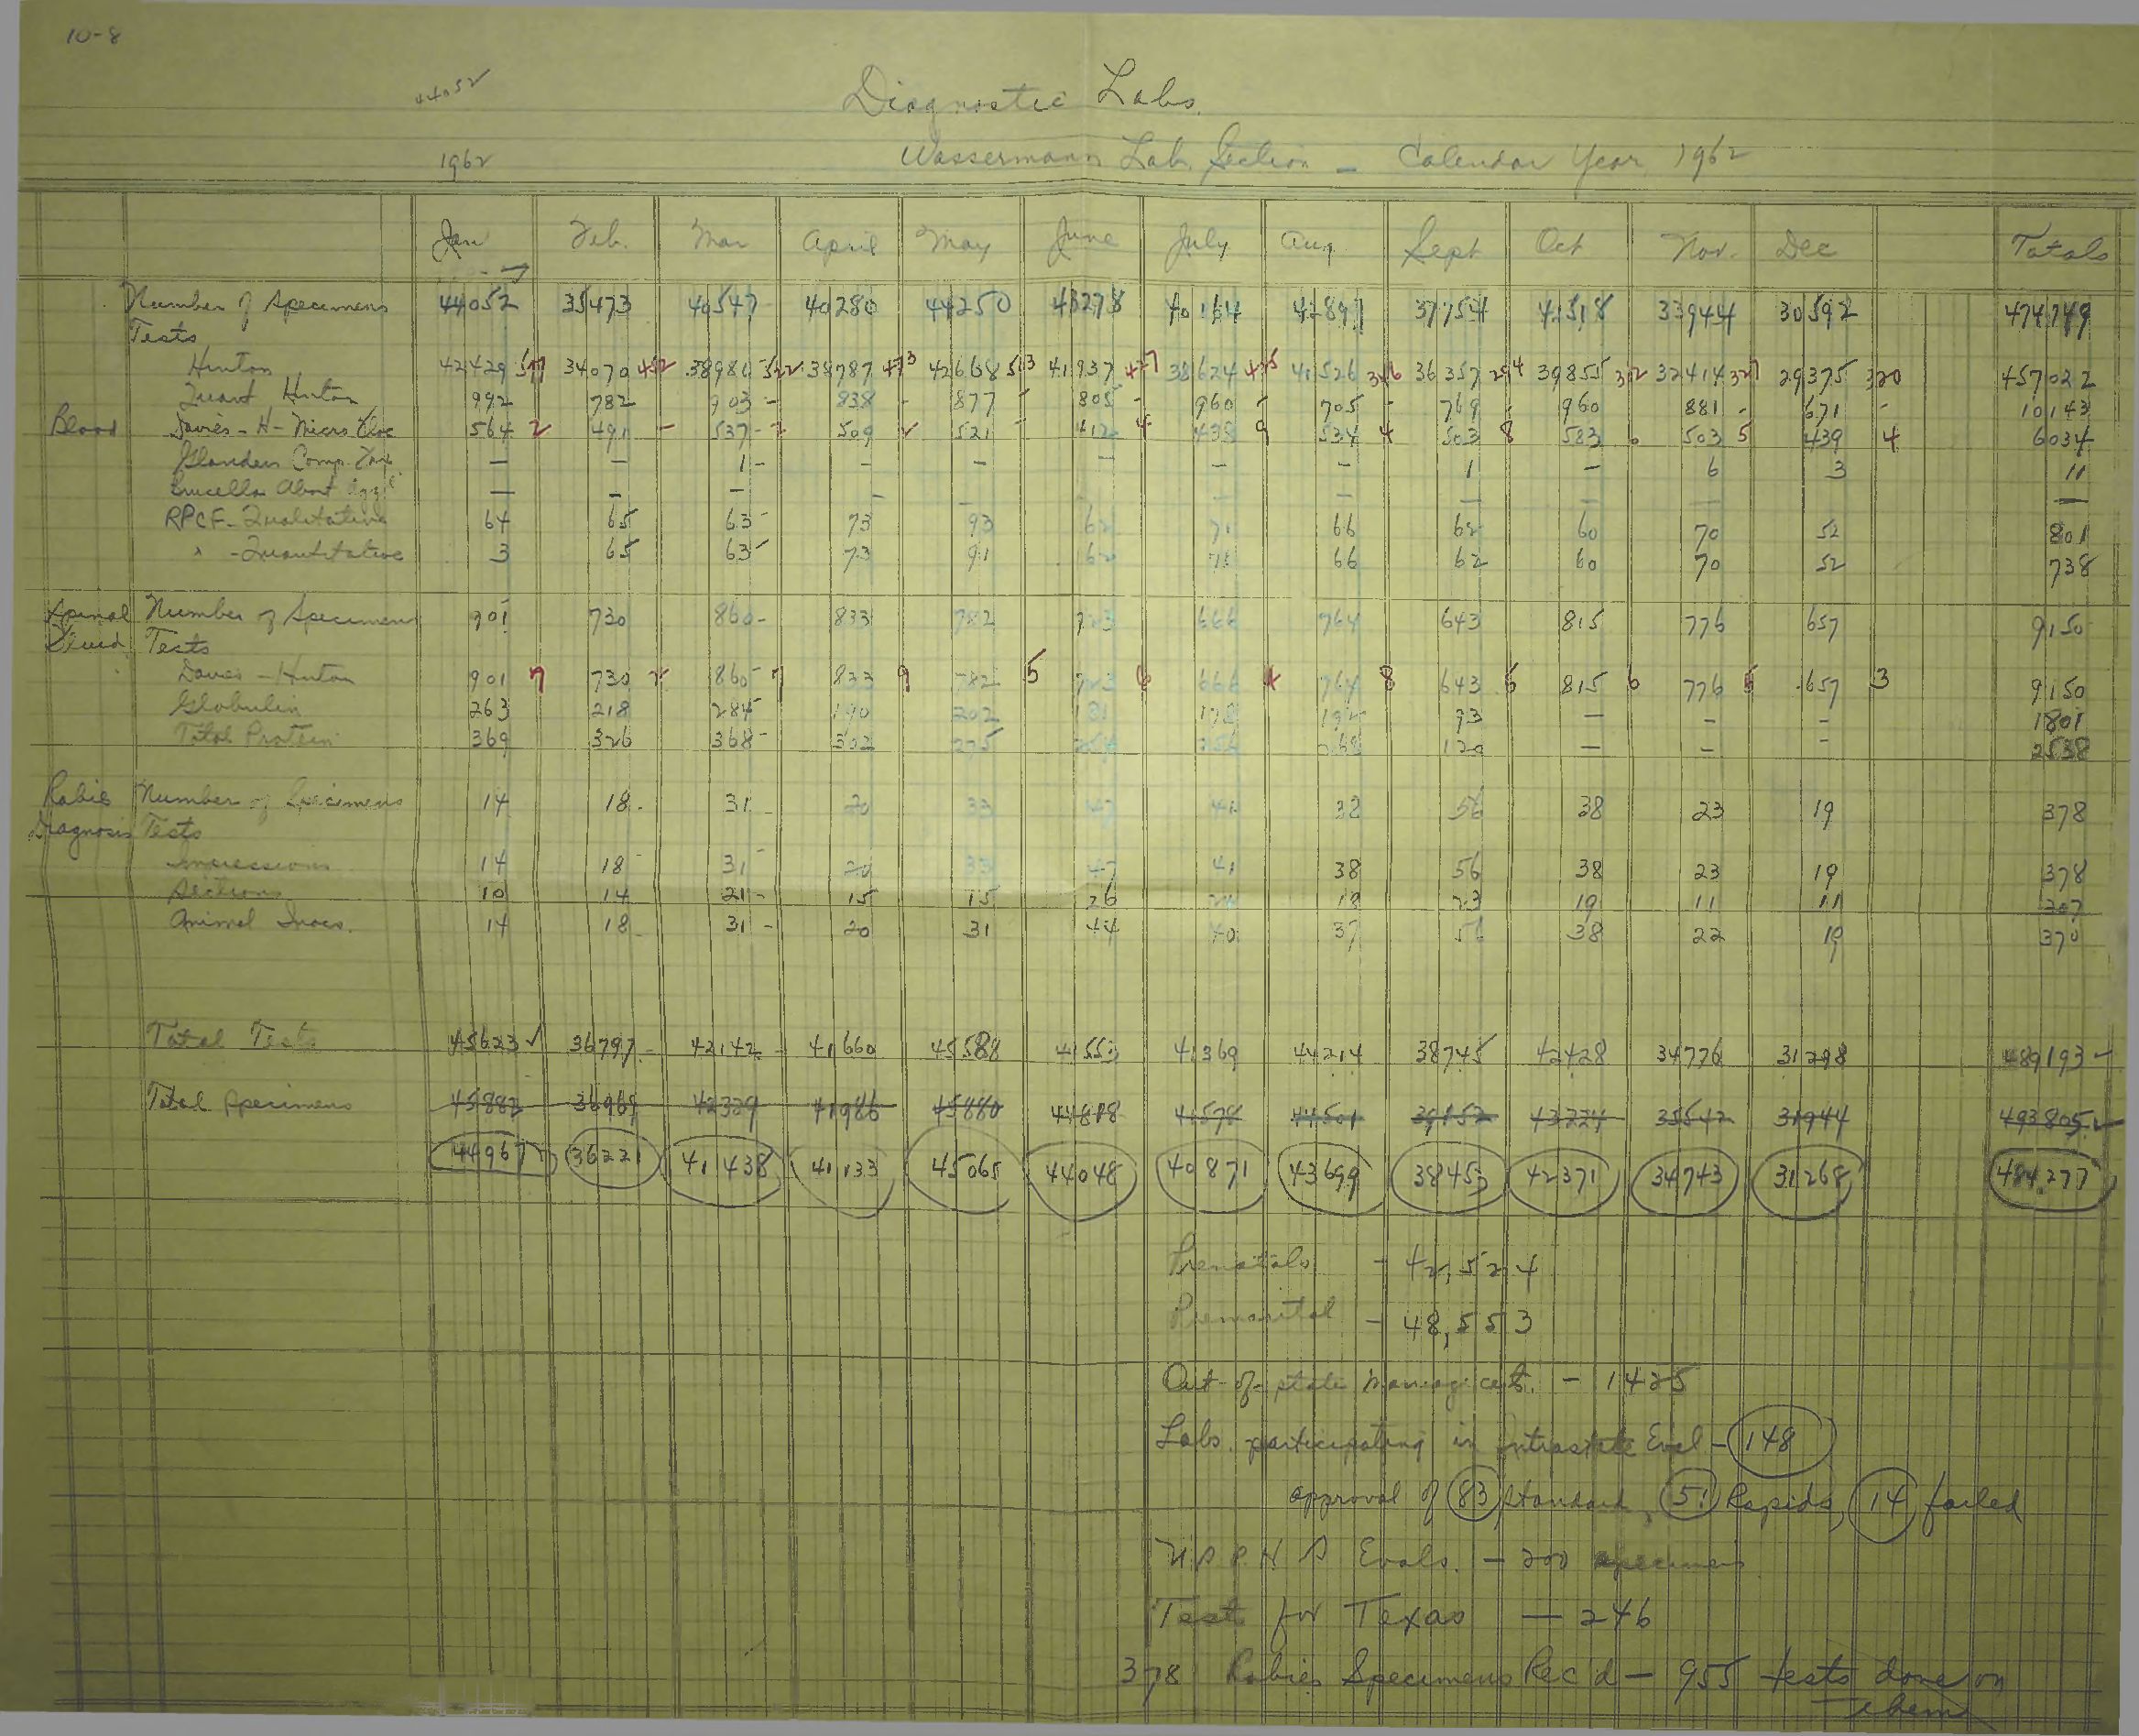 10-8
44052
Diagnostic Labs.
1962 Wassermann Lab. Section — Calendar Year 1962
Jan Feb. Mar April May June July Aug. Sept Oct Nov. Dec Totals
Number of Specimens 44052 35473 40547 40280 44250 43278 40164 42897 37754 41518 33944 30592 474749
Tests
Hinton 42429 34070 38980 38787 42668 41937 38624 41526 36357 39855 32414 29375 457022
Quant Hinton 992 782 903 - 838 - 877 - 805 - 960 - 705 - 769 - 960 881 - 671 - 10143
Blood Davies-H-Micro Floc 564 2 491 - 537 - 2 509 521 - 412 4 438 9 534 4 503 8 583 6 503 5 439 4 6034
Glanders Comp. Fix. — — 1 - - - - - - 1 - 6 3 11
Brucella Abort Aggl. — — — — — — — — — —
RPCF-Qualitative 64 65 63 - 73 93 62 71 66 62 60 70 52 801
" -Quantitative 3 65 63 - 73 91 62 71 66 62 60 70 52 738
Spinal Number of Specimens 901 730 860 - 833 782 723 666 764 643 815 776 657 9150
Fluid Tests
Davies-Hinton 901 7 730 860 - 7 833 9 782 5 723 6 666 4 764 8 643 5 815 6 776 5 657 3 9150
Globulin 263 218 284 - 190 202 181 178 192 93 — - - 1801
Total Protein 369 326 368 - 302 275 254 256 268 120 — - - 2538
Rabies Number of Specimens 14 18. 31 20 33 47 41 38 56 38 23 19 378
Diagnosis Tests
Impressions 14 18 - 31 - 20 33 47 41 38 56 38 23 19 378
Sections 10 14 21 - 15 15 26 24 18 23 19 11 11 207
Animal Inocs. 14 18 31 - 20 31 44 40 37 56 38 22 19 370
Total Tests 45623 ✓ 36797 - 42142 - 41660 45588 41369 44214 38745 42428 34776 31298 489193 -
Total Specimens 45882 36969 42339 41986 45880 44818 41578 44501 39152 43224 35542 31944 493805 ✓
44967 36221 41438 41133 45065 44048 40871 43699 38453 42371 34743 31268 484,277
Prenatals - 42,524
Premarital - 48,553
Out-of-state marriage certs. - 1425
Labs. participating in Intrastate Eval - 148
approval of 83 standard, 51 Rapids, 14 failed
U S P H S Evals. — 200 specimens
Tests for Texas — 246
378 Rabies Specimens Rec'd — 955 tests done on
them